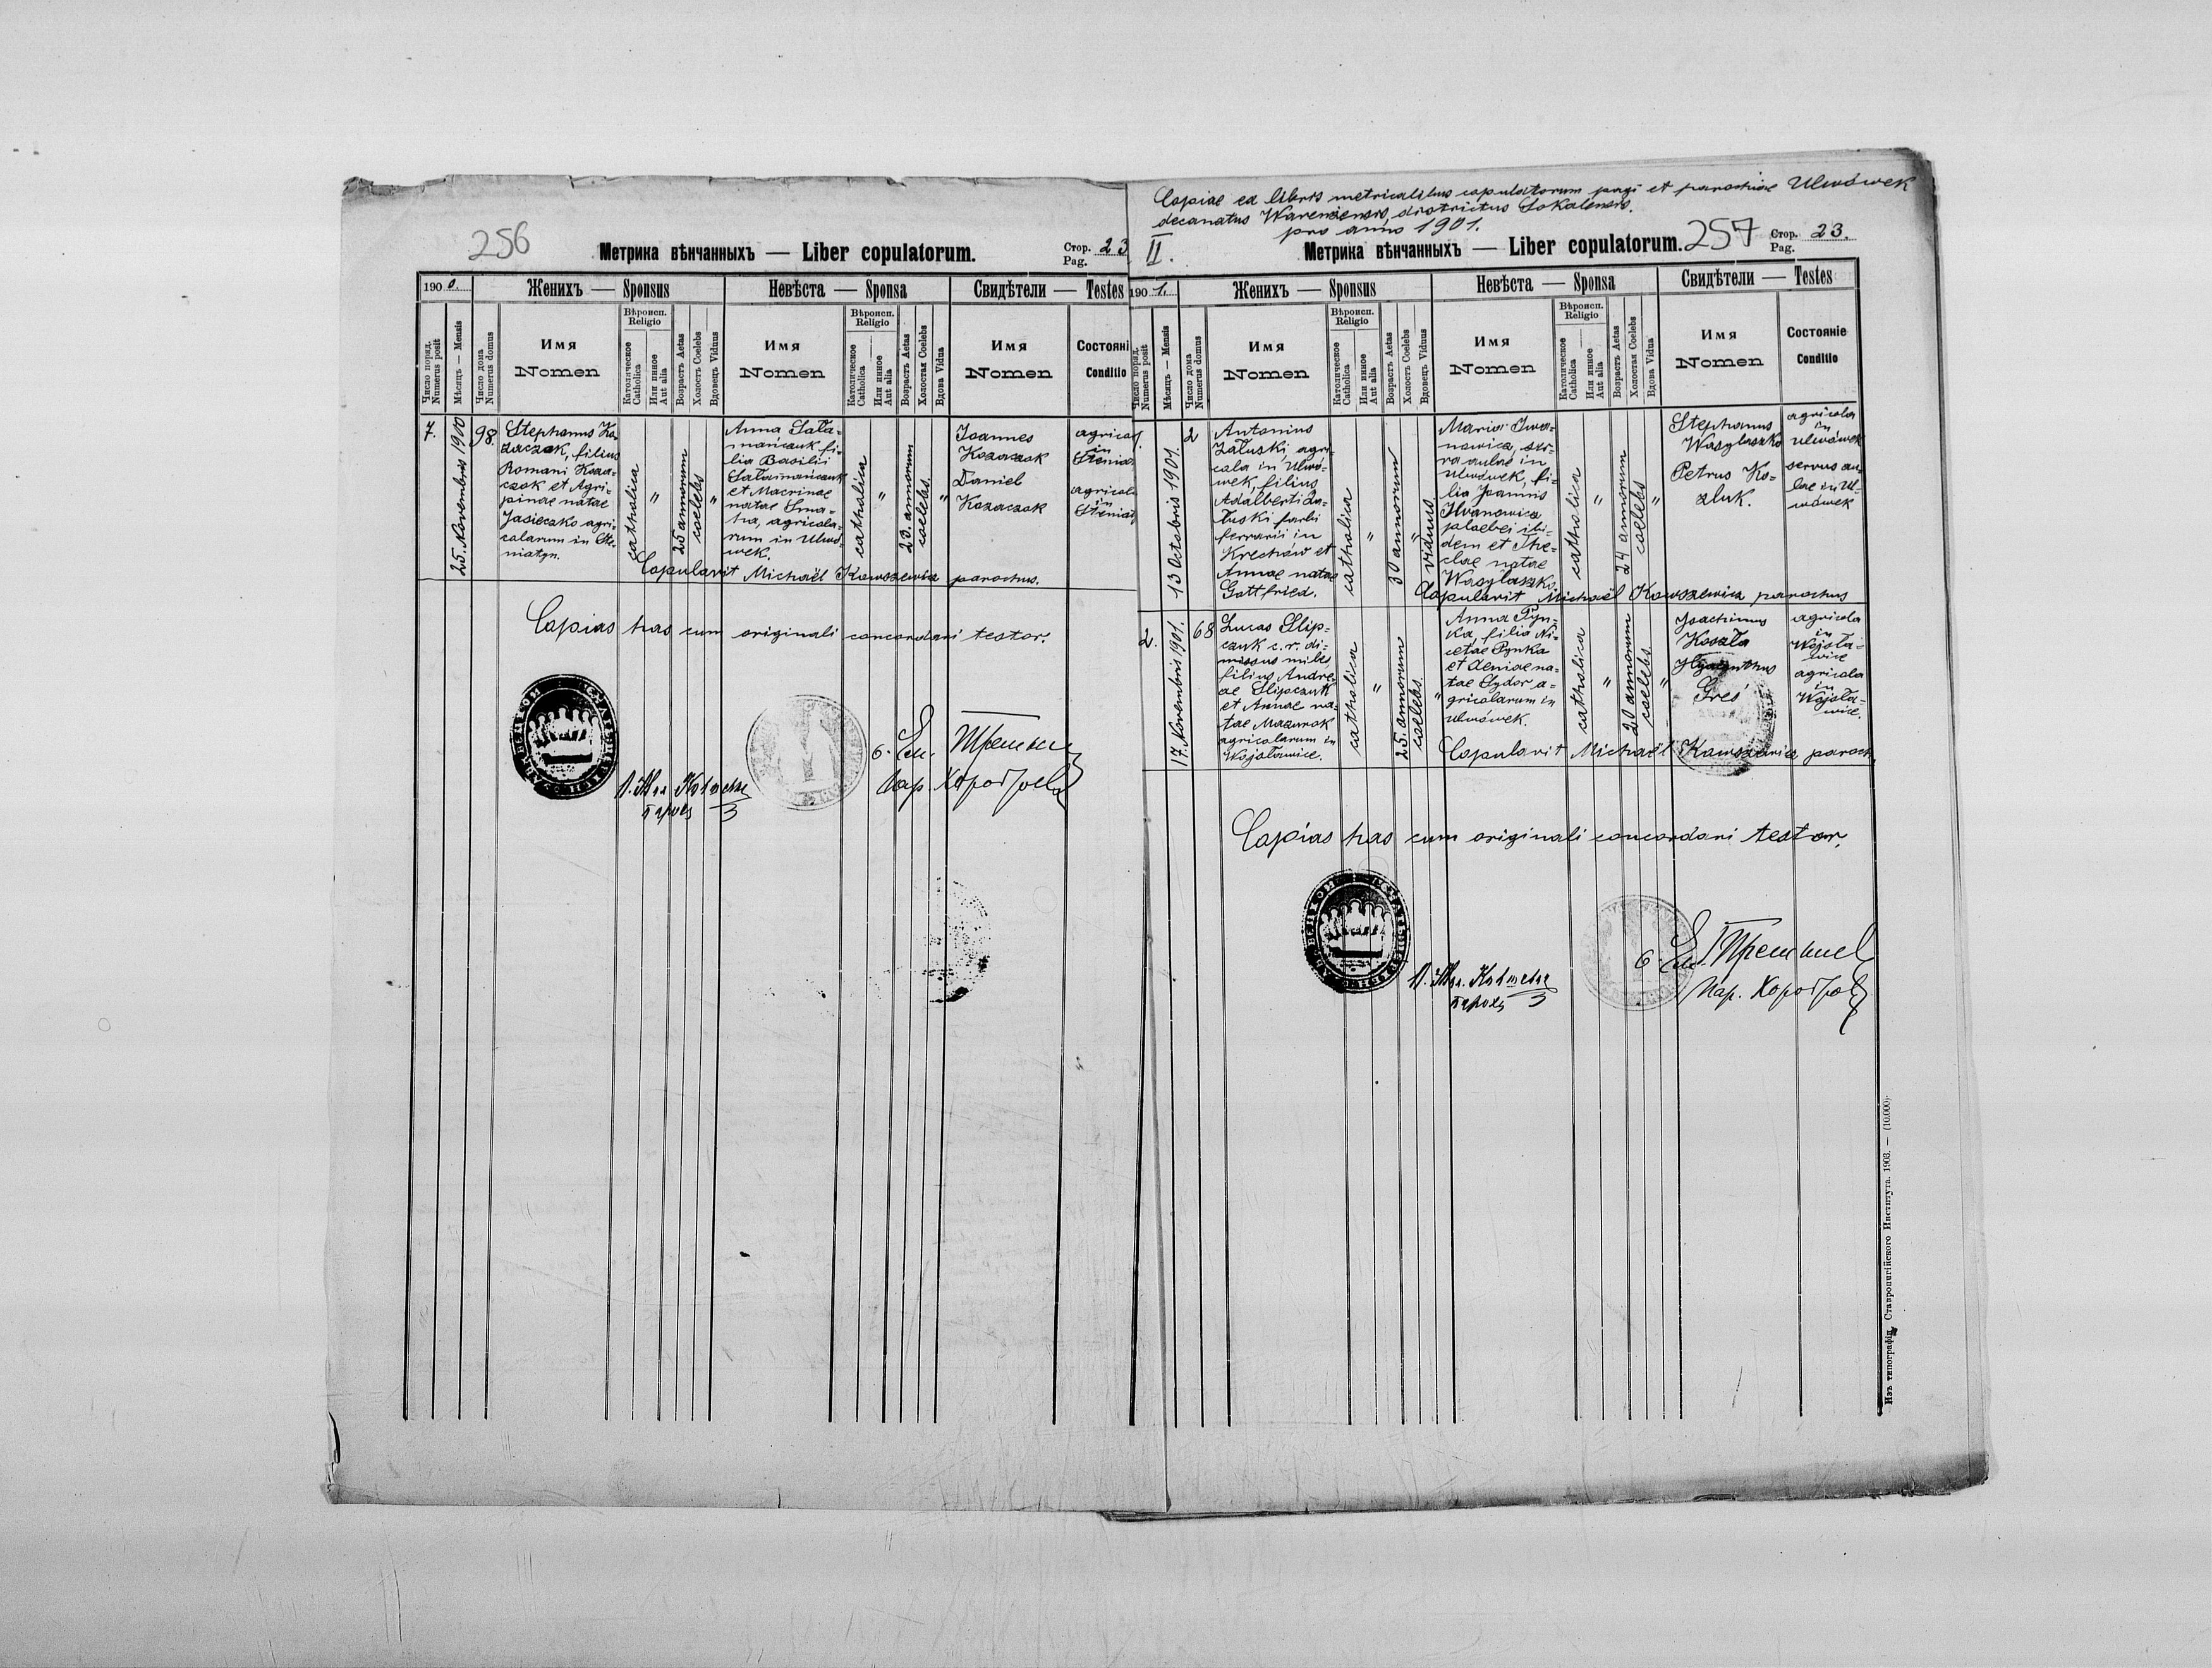 256
Метрика вѣнчанныхъ — Liber copulatorum.
Стор. 23
Pag.
190 0.
Женихъ — Sponsus
Невѣста — Sponsa
Свидѣтели — Testes
Число поряд.
Numerus posit
Мѣсяць — Mensis
Число дома
Numerus domus
Имя
Nomen
Вѣроисп.
Religio
Католическое
Catholica
Или инное
Aut alia
Возрастъ Aetas
Холостъ Coelebs
Вдовецъ Viduus
Имя
Nomen
Вѣроисп.
Religio
Католическое
Catholica
Или инное
Aut alia
Возрастъ Aetas
Холостая Coelebs
Вдова Vidua
Имя
Nomen
Состояні
Conditio
7.
25. Novembris 1900
98.
Stephanus Ko-
zaczok, filius
Romani Koza-
czok et Agri-
pinae natae
Jasieczko agri-
colarum in Ste-
niatyn.
catholica
"
25 annorum
caelebs
"
Anna Sała-
mańczuk fi-
lia Basilii
Sałamańczuk
et Macrinae
natae Sma-
ha, agricola-
rum in Ulwó-
wek.
catholica
"
23. annorum
caelebs.
"
Joannes
Kozaczok
Daniel
Kozaczok
agricol
in
Steniat
agricola
in
Steniat
Copulavit Michaël Kowszewicz parochus.
Copias has cum originali concordari testor.
257
Copiae ex libris metricalibus copulatorum pagi et parochiae Ulwówek
decanatus Warensensis, districtus Sokalensis.
pro anno 1901.
II.
Метрика вѣнчанныхъ — Liber copulatorum.
Стор. 23.
Pag.
190 1.
Женихъ — Sponsus
Невѣста — Sponsa
Свидѣтели — Testes
Число поряд.
Numerus posit
Мѣсяць — Mensis
Число дома
Numerus domus
Имя
Nomen
Вѣроисп.
Religio
Католическое
Catholica
Или инное
Aut alia
Возрастъ Aetas
Холостъ Coelebs
Вдовецъ Viduus
Имя
Nomen
Вѣроисп.
Religio
Католическое
Catholica
Или инное
Aut alia
Возрастъ Aetas
Холостая Coelebs
Вдова Vidua
Имя
Nomen
Состояніе
Conditio
13 Octobris 1901.
2
Antonius
Załuski, agri-
cola in Ulwó-
wek, filius
Adalberti Za-
łuski fabri
ferrarii in
Krechów et
Annae natae
Gottfried.
catholica
"
30 annorum
"
viduus
Maria Iwa-
nowicz, ser-
va aulae in
Ulwówek, fi-
lia Joannis
Iwanowicz
plaebei ibi-
dem et The-
clae natae
Wasylaszko.
catholica
"
24 annorum
caelebs
"
Stephanus
Wasylaszko
Petrus Ko-
zluk.
agricola
in
Ulwówek
servus au-
lae in Ul-
wówek
Copulavit Michaël Kowszewicz parochus
2.
17. Novembris 1901.
68
Lucas Slip-
czuk c. r. di-
missus miles,
filius Andre-
ae Slipczuk
et Annae na-
tae Mazurok
agricolarum in
Wojsławice.
catholica
"
25. annorum
caelebs.
"
Anna Pyn-
ka, filia Ni-
cetae Pynka
et Xeniae na-
tae Sydor a-
gricolarum in
Ulwówek.
catholica
"
20 annorum
caelebs.
"
Joachimus
Koszla
Hyacinthus
Greś
agricola
in
Wojsła-
wice
agricola
in
Wojsła-
wice.
Copulavit Michaël Kowszewicz paroch.
Copias has cum originali concordari testor.
Изъ типографіи Ставропигійского Института. 1903. — (10.000).